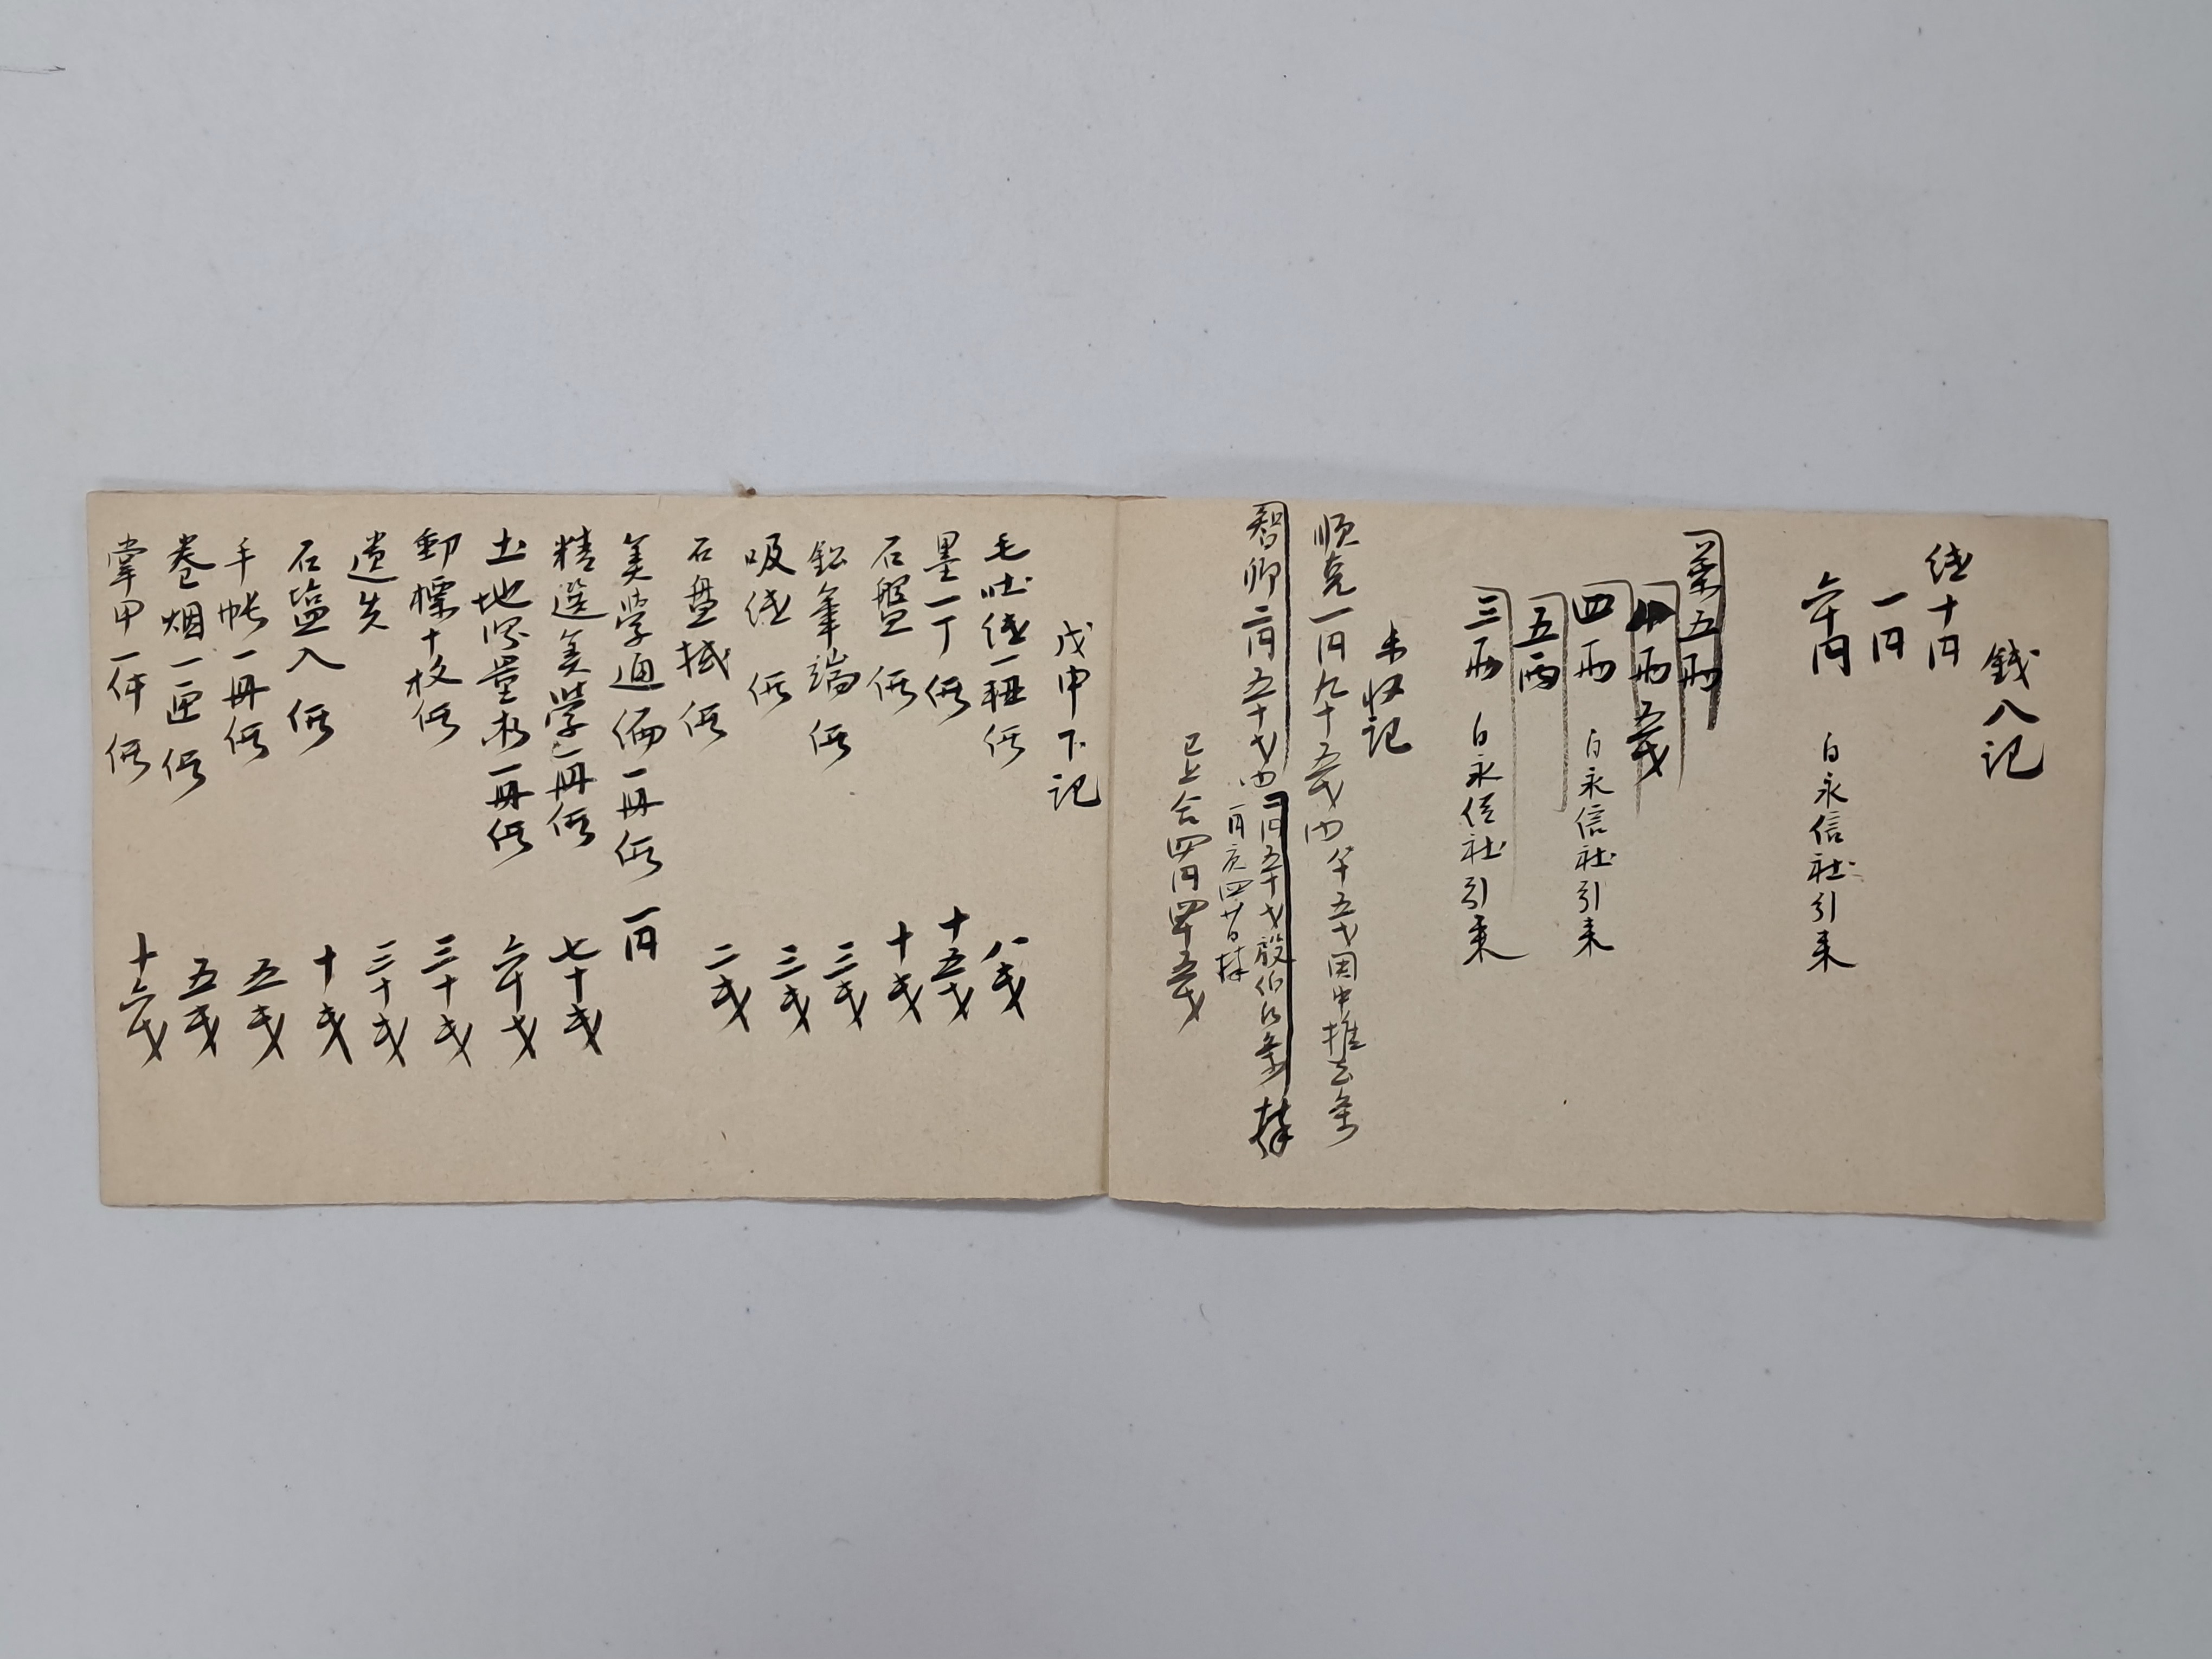 錢入記
紙十円
一円
六十円 自永信社引來
葉五両
十両五戔
四両 自永信社引來
五両
三両 自永信社引來
未收記
順克一円九十五戔内 五戔 因中推去条
智卿二円五十戔内 二円五十戔 殷伯 条捧
一円 四廿日捧
已上合四円四十五戔
戊申下記
毛吐紙一軸価 八戔
墨一丁価 十五戔
石盤価 十戔
鉛筆端価 三戔
吸紙価 三戔
石盤拭価 二戔
美学通編一冊価 一円
精選美学一冊価 七十戔
土地測量 一冊価 六十戔
郵標十枚価 三十戔
遺失 三十戔
石盤入価 十戔
手帳一冊価 五戔
卷烟一匣価 五戔
掌甲一件価 十六戔